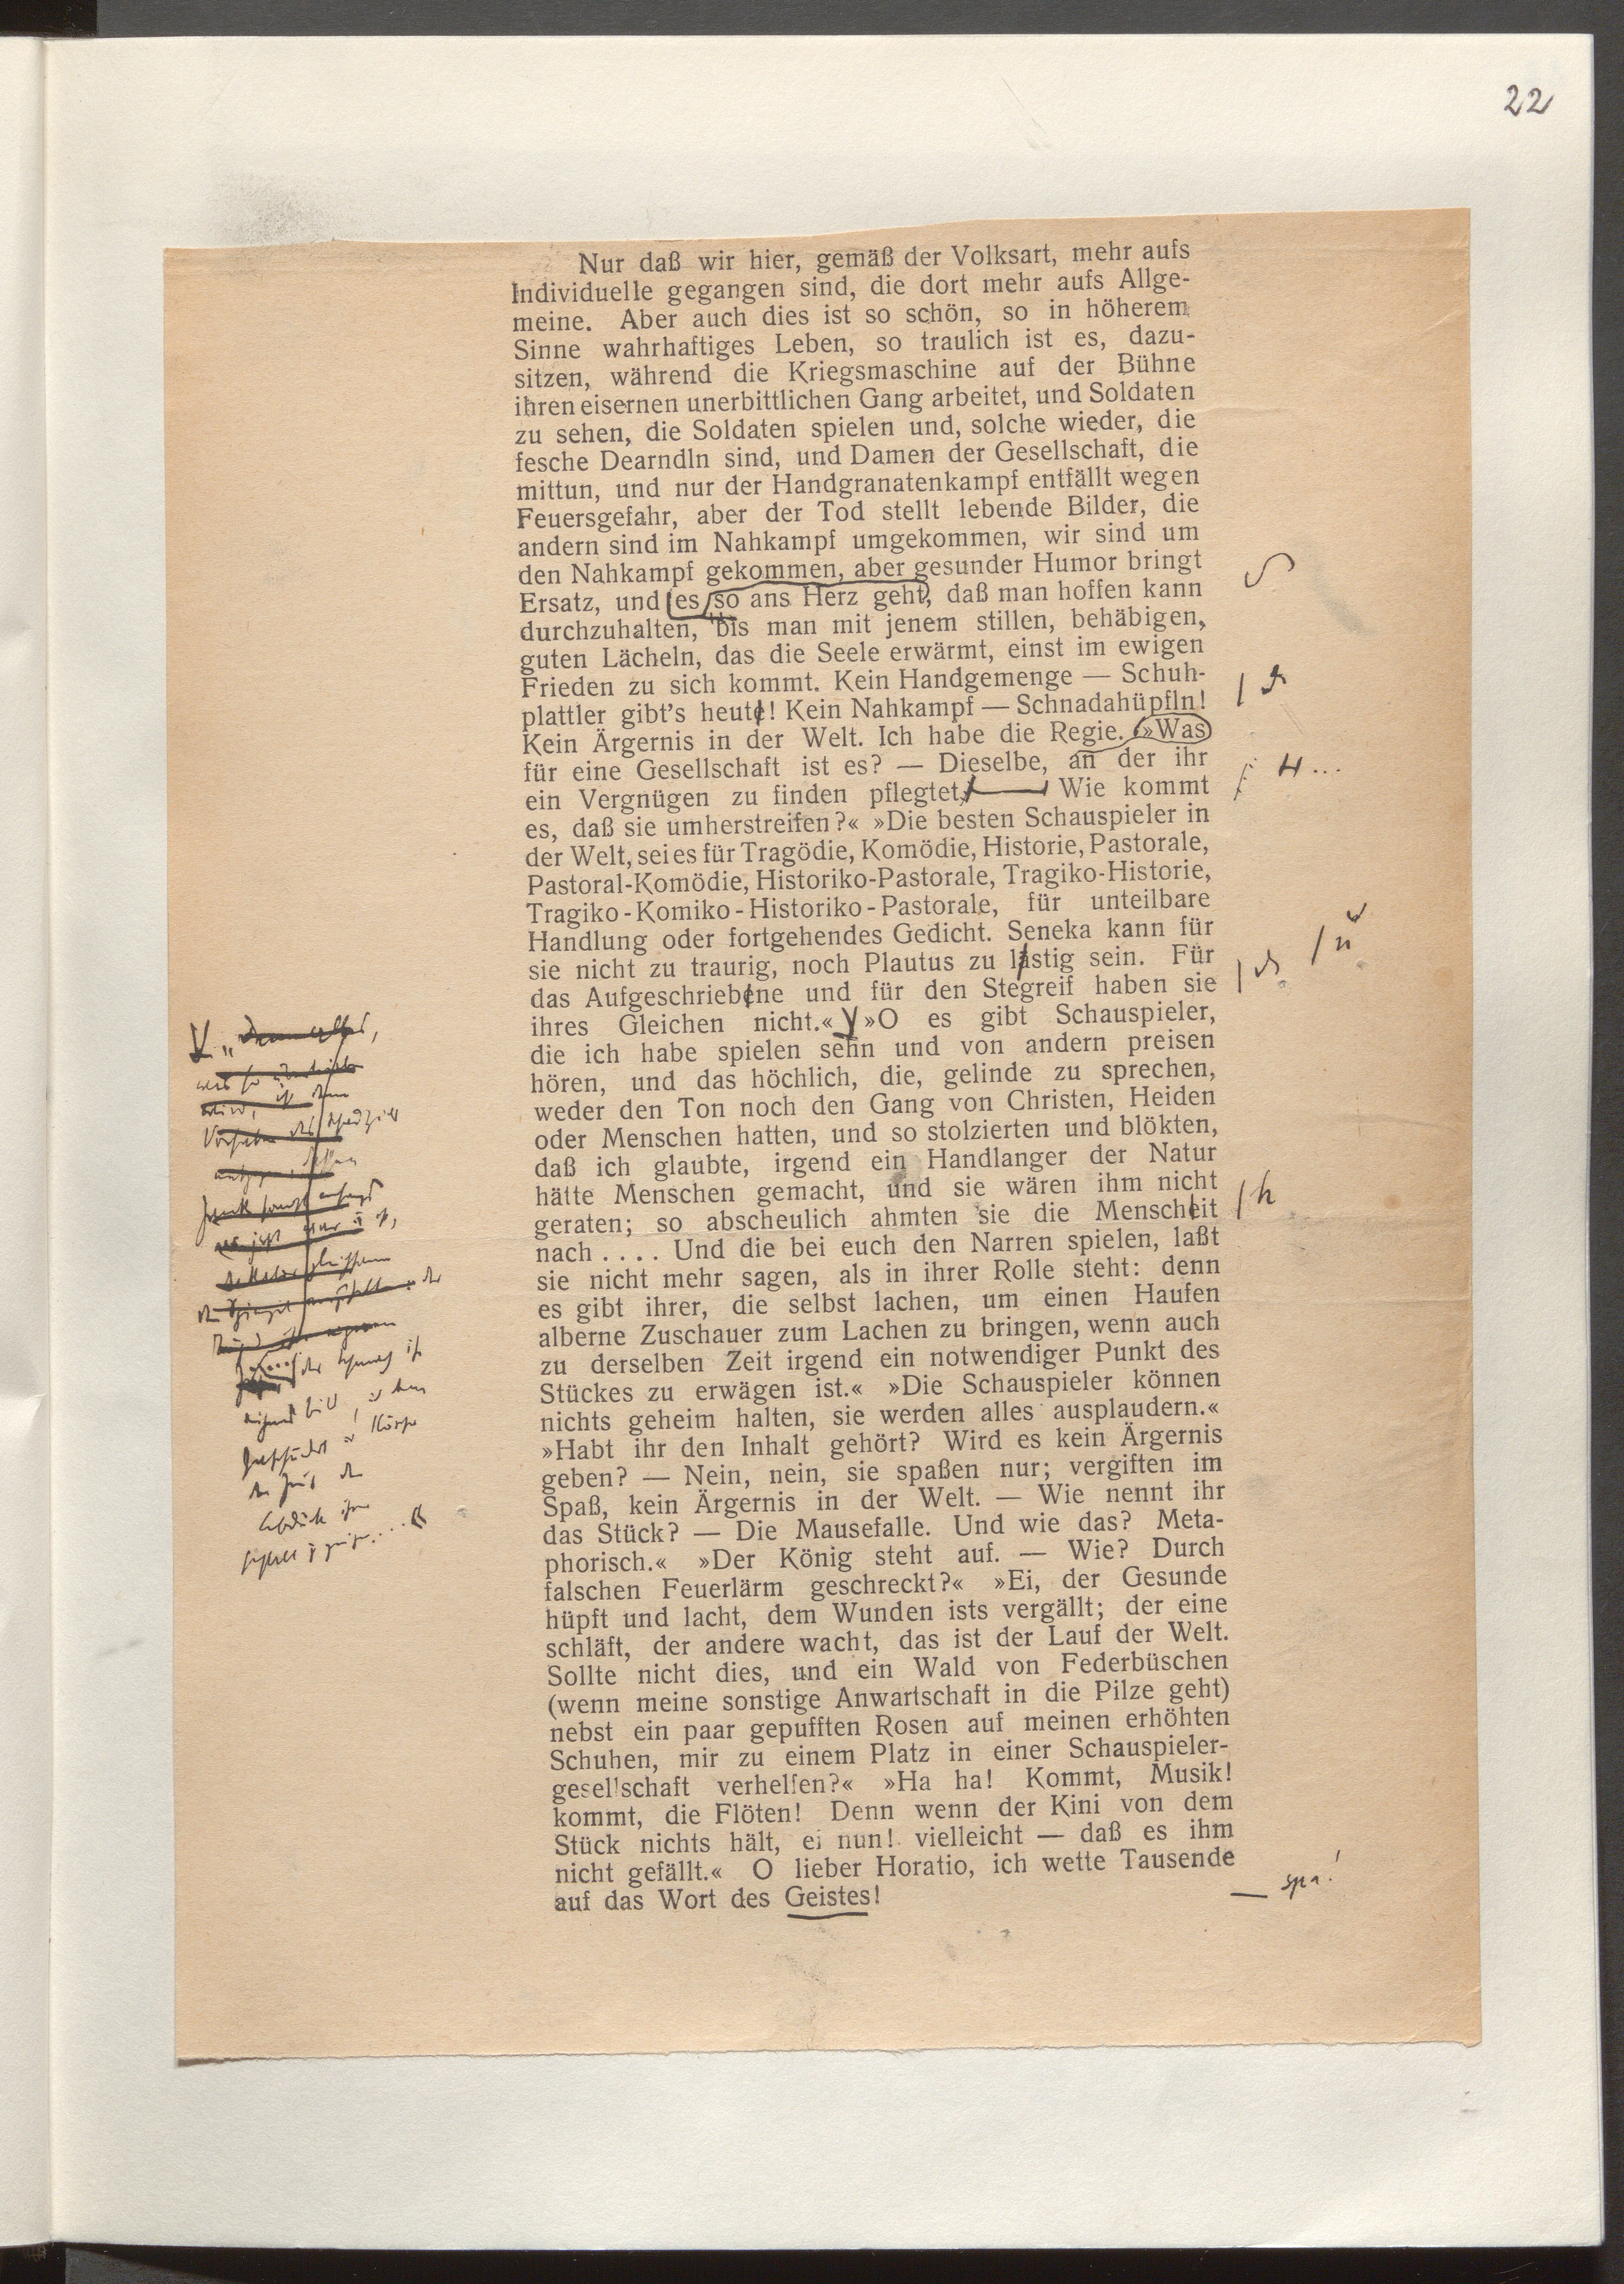 22
Nur daß wir hier, gemäß der Volksart, mehr aufs
Individuelle gegangen sind, die dort mehr aufs Allge-
meine. Aber auch dies ist so schön, so in höherem
Sinne wahrhaftiges Leben, so traulich ist es, dazu-
sitzen, während die Kriegsmaschine auf der Bühne
ihren eisernen unerbittlichen Gang arbeitet, und Soldaten
zu sehen, die Soldaten spielen und, solche wieder, die
fesche Dearndln sind, und Damen der Gesellschaft, die
mittun, und nur der Handgranatenkampf entfällt wegen
Feuersgefahr, aber der Tod stellt lebende Bilder, die
andern sind im Nahkampf umgekommen, wir sind um
den Nahkampf gekommen, aber gesunder Humor bringt
Ersatz, und es so ans Herz geht, daß man hoffen kann
durchzuhalten, bis man mit jenem stillen, behäbigen,
guten Lächeln, das die Seele erwärmt, einst im ewigen
Frieden zu sich kommt. Kein Handgemenge — Schuh-
plattler gibt's heute! Kein Nahkampf — Schnadahüpfln!
Kein Ärgernis in der Welt. Ich habe die Regie. »Was
für eine Gesellschaft ist es? — Dieselbe, an der ihr
ein Vergnügen zu finden pflegtet, Wie kommt
es, daß sie umherstreifen?« »Die besten Schauspieler in
der Welt, sei es für Tragödie, Komödie, Historie, Pastorale,
Pastoral-Komödie, Historiko-Pastorale, Tragiko-Historie,
Tragiko-Komiko-Historiko-Pastorale, für unteilbare
Handlung oder fortgehendes Gedicht. Seneka kann für
sie nicht zu traurig, noch Plautus zu lastig sein. Für
das Aufgeschriebene und für den Stegreif haben sie
ihres Gleichen nicht.« »O es gibt Schauspieler,
die ich habe spielen sehn und von andern preisen
hören, und das höchlich, die, gelinde zu sprechen,
weder den Ton noch den Gang von Christen, Heiden
oder Menschen hatten, und so stolzierten und blökten,
daß ich glaubte, irgend ein Handlanger der Natur
hätte Menschen gemacht, und sie wären ihm nicht
geraten; so abscheulich ahmten sie die Menscheit
h
nach . . . . Und die bei euch den Narren spielen, laßt
sie nicht mehr sagen, als in ihrer Rolle steht: denn
es gibt ihrer, die selbst lachen, um einen Haufen
alberne Zuschauer zum Lachen zu bringen, wenn auch
zu derselben Zeit irgend ein notwendiger Punkt des
Stückes zu erwägen ist.« »Die Schauspieler können
nichts geheim halten, sie werden alles ausplaudern.«
»Habt ihr den Inhalt gehört? Wird es kein Ärgernis
geben? — Nein, nein, sie spaßen nur; vergiften im
Spaß, kein Ärgernis in der Welt. — Wie nennt ihr
das Stück? — Die Mausefalle. Und wie das? Meta-
phorisch.« »Der König steht auf. — Wie? Durch
falschen Feuerlärm geschreckt?« »Ei, der Gesunde
hüpft und lacht, dem Wunden ists vergällt; der eine
schläft, der andere wacht, das ist der Lauf der Welt.
Sollte nicht dies, und ein Wald von Federbüschen
(wenn meine sonstige Anwartschaft in die Pilze geht)
nebst ein paar gepufften Rosen auf meinen erhöhten
Schuhen, mir zu einem Platz in einer Schauspieler-
gesellschaft verhelfen?« »Ha ha! Kommt, Musik!
kommt, die Flöten! Denn wenn der Kini von dem
Stück nichts hält, ei nun! vielleicht — daß es ihm
nicht gefällt.« O lieber Horatio, ich wette Tausende
auf das Wort des Geistes!